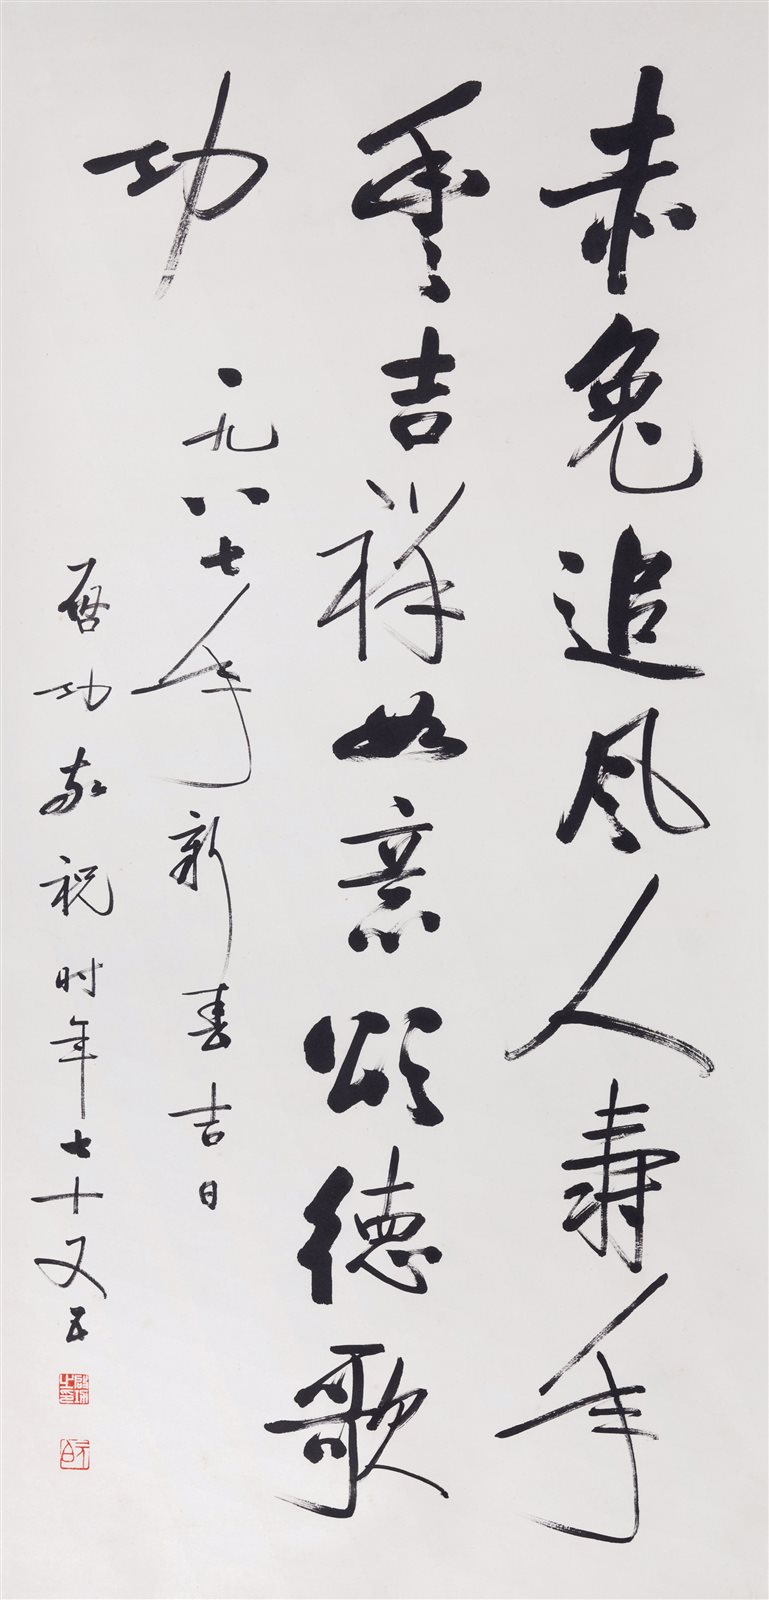 赤兔追风人寿年
丰吉祥如意颂德歌
功
一九八七年新春吉日
启功敬祝时年七十又五
启功之印
元白